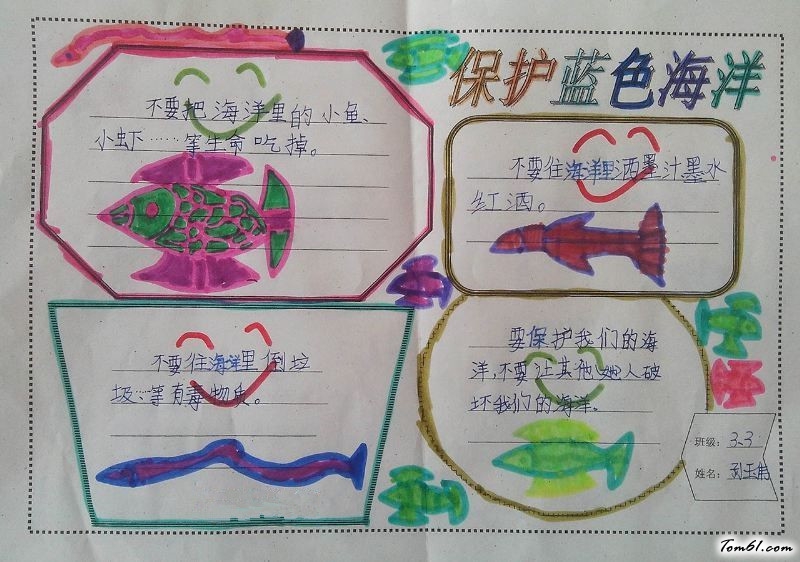 保护蓝色海洋
不要把海洋里的小鱼、
小虾……等生命吃掉。
不要往海洋里洒墨汁墨水
红酒。
不要往海洋里倒垃
圾……等有毒物质。
要保护我们的海
洋,不要让其他她人破
坏我们的海洋。
班级: 3.3
姓名:
Tom61.com